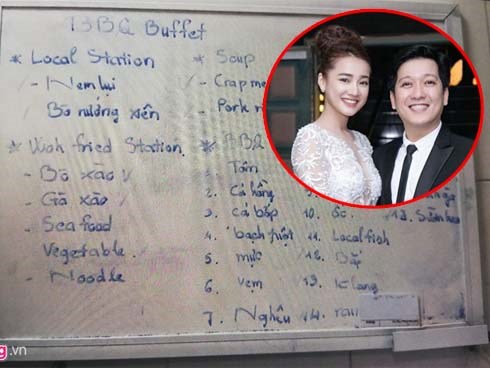 BBQ Buffet
* Local Station
- Nem lụi
- Bò nướng xiên
* Wok fried Station.
- Bò xào
- Gà xào
- Sea food
- Vegetable
- Noodle
* Soup
- Crap
- Pork
* BBQ
1. Tôm
2. Cá hồng
3. cá bớp
4. bạch tuột
5. mực
6. vem
7. Nghêu
10. ốc
11. Local fish
12. Bắp
13. K lang
14.
ng.vn